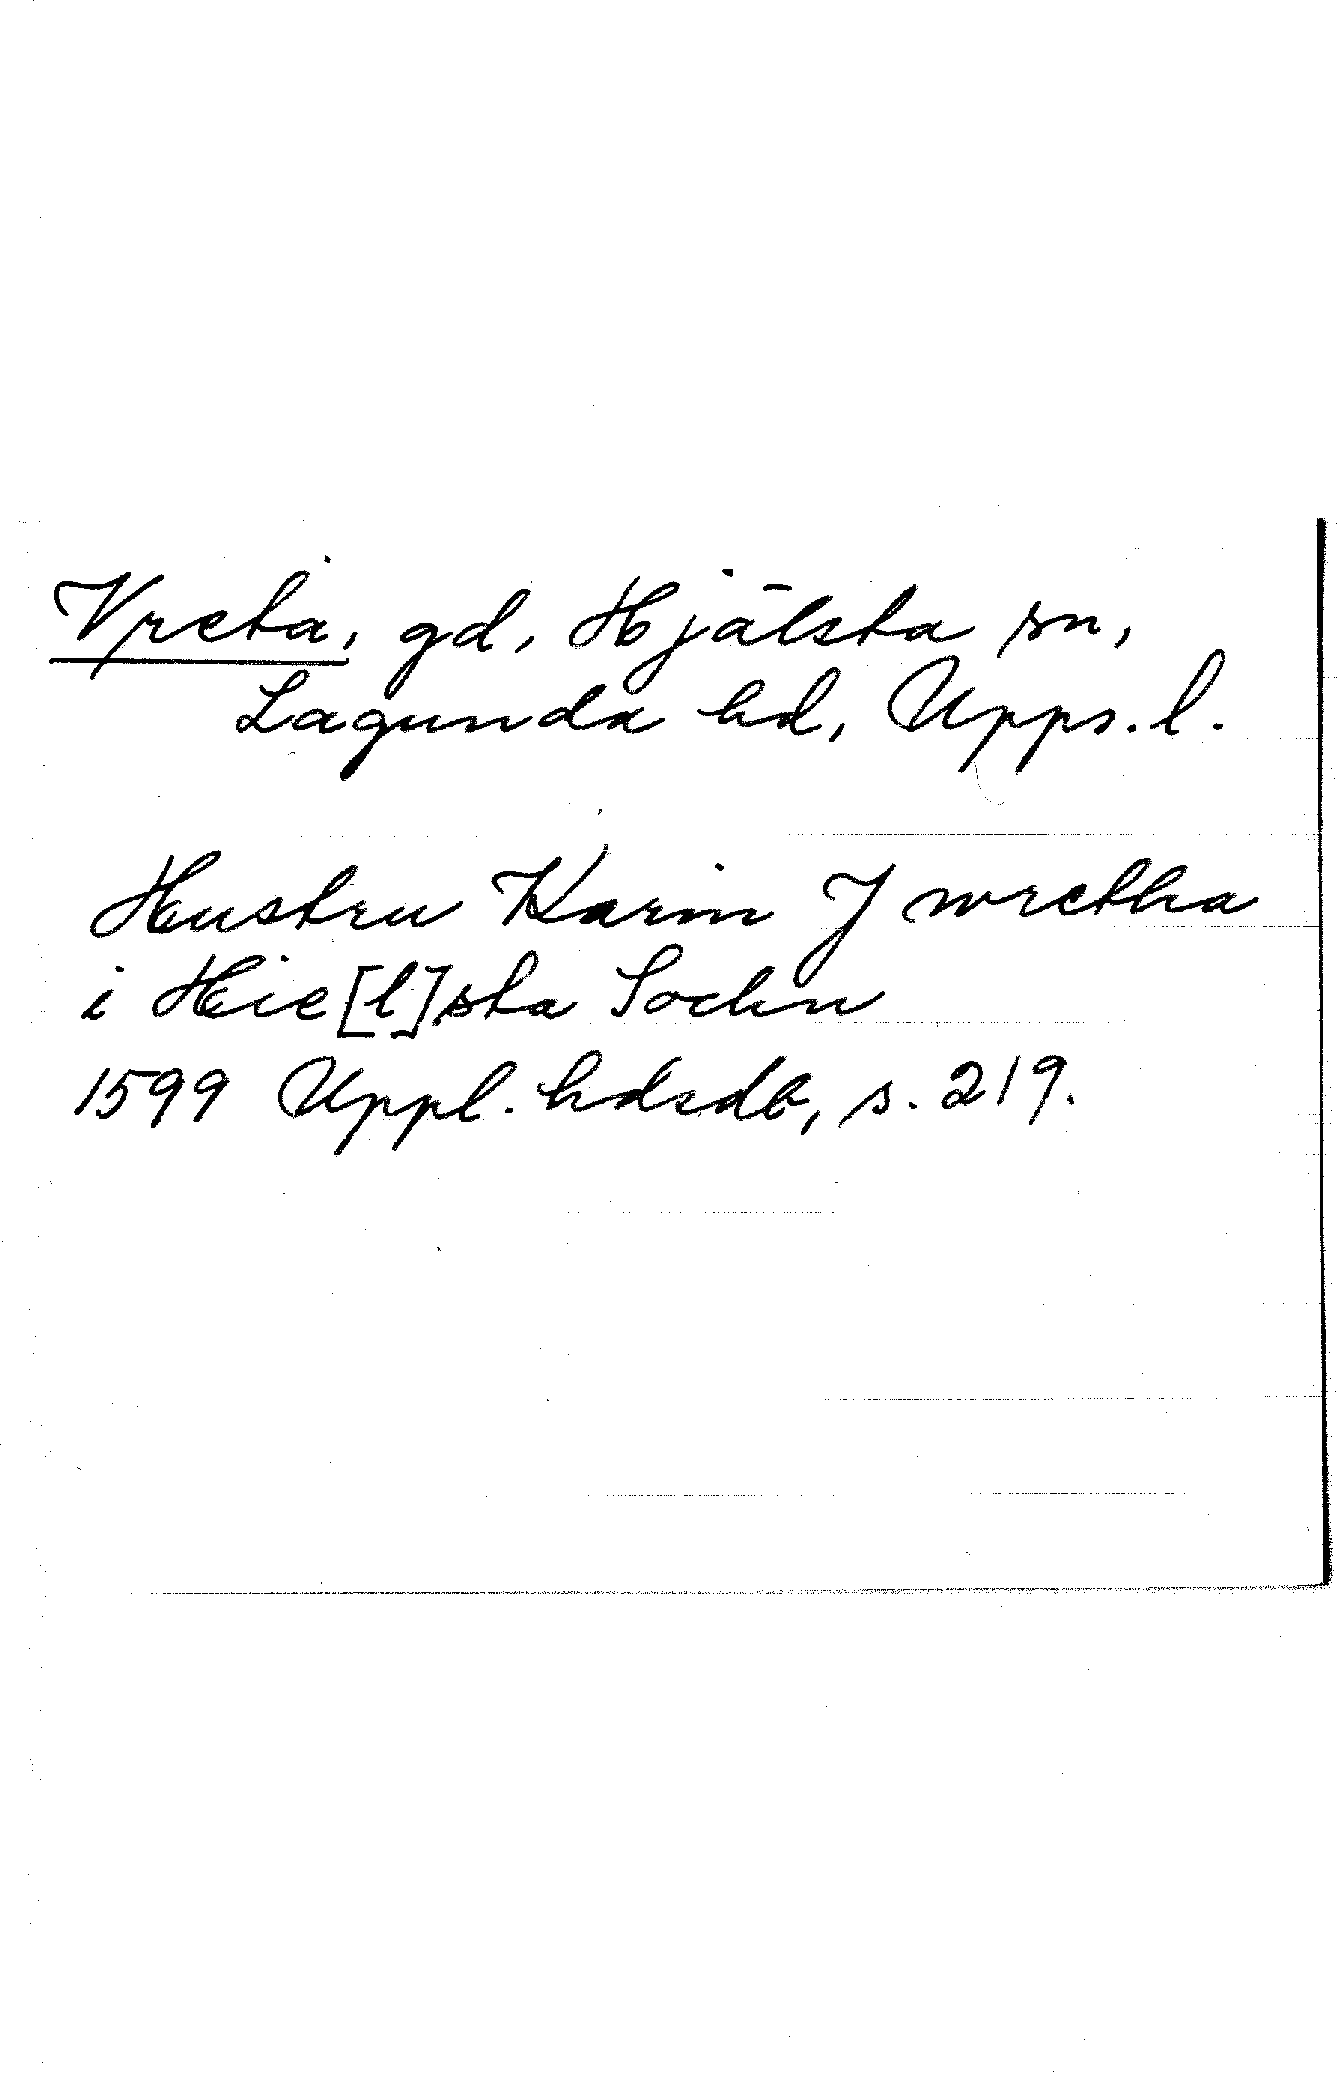 Vreta, gd, Hjälsta sn,
Lagunda hd, Upps. l.
Hustru Karin J wretha
i Hie[l]sta Sochn
1599 Uppl. hdsdb, s. 219.